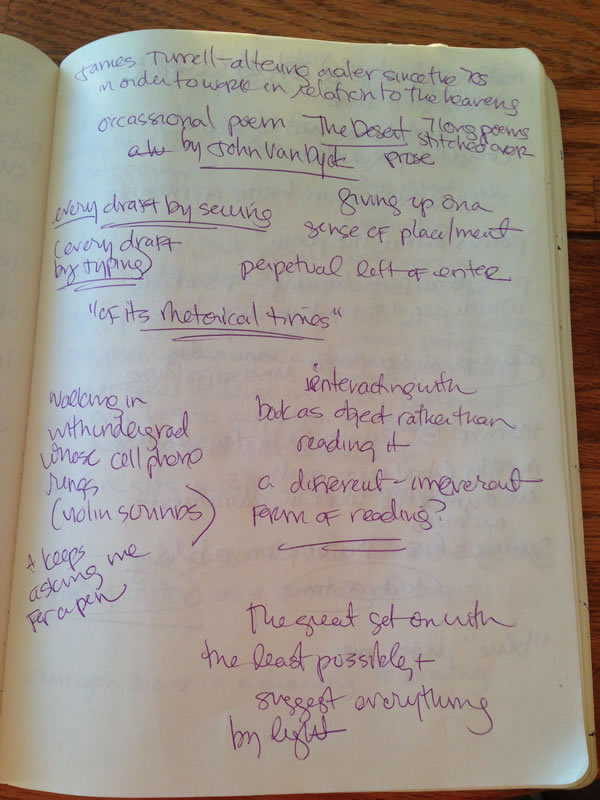 James Turrell - altering crater since the 70s
in order to work in relation to the heavens
occassional poem The Desert 7 long poems
by John Van Dyck stitched over
prose
every draft by sewing
(every draft
by typing)
giving up on a
sense of place/ment
perpetual left of center
"of its rhetorical times"
walking in
with undergrad
whose cell phone
rings
(violin sounds)
+ keeps
asking me
for a pen
interacting with
book as object rather than
reading it
a different - irreverant
form of reading?
the great set on with
the least possible, +
suggest everything
by light